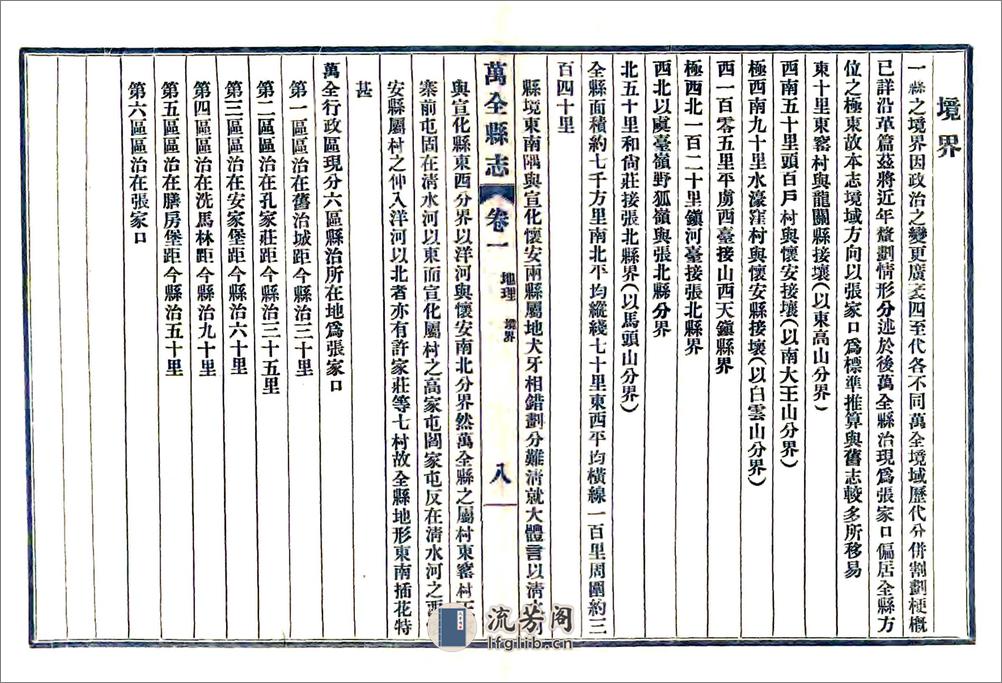 境界
一縣之境界因政治之變更廣袤四至代各不同萬全境域歷代分併割劃梗概
已詳沿革篇茲將近年釐劃情形分述於後萬全縣治現爲張家口偏居全縣方
位之極東故本志境域方向以張家口爲標準推算與舊志較多所移易
東十里東窰村與龍關縣接壤(以東高山分界)
西南五十里頭百戶村與懷安接壤(以南大王山分界)
極西南九十里水濠窪村與懷安縣接壤(以白雲山分界)
西一百零五里平虜西臺接山西天鎮縣界
極西北一百二十里鎮河臺接張北縣界
西北以虞臺嶺野狐嶺與張北縣分界
北五十里和尚莊接張北縣界(以馬頭山分界)
全縣面積約七千方里南北平均縱綫七十里東西平均橫線一百里周圍約三
百四十里
縣境東南隅與宣化懷安兩縣屬地犬牙相錯劃分難清就大體言以清
萬全縣志 卷一 地理 境界 八
與宣化縣東西分界以洋河與懷安南北分界然萬全縣之屬村東窰村
寨前屯固在清水河以東而宣化屬村之高家屯閻家屯反在清水河之西
安縣屬村之伸入洋河以北者亦有許家莊等七村故全縣地形東南插花特
甚
萬全行政區現分六區縣治所在地爲張家口
第一區區治在舊治城距今縣治三十里
第二區區治在孔家莊距今縣治三十五里
第三區區治在安家堡距今縣治六十里
第四區區治在洗馬林距今縣治九十里
第五區區治在膳房堡距今縣治五十里
第六區區治在張家口
流芳阁
lfglib.cn